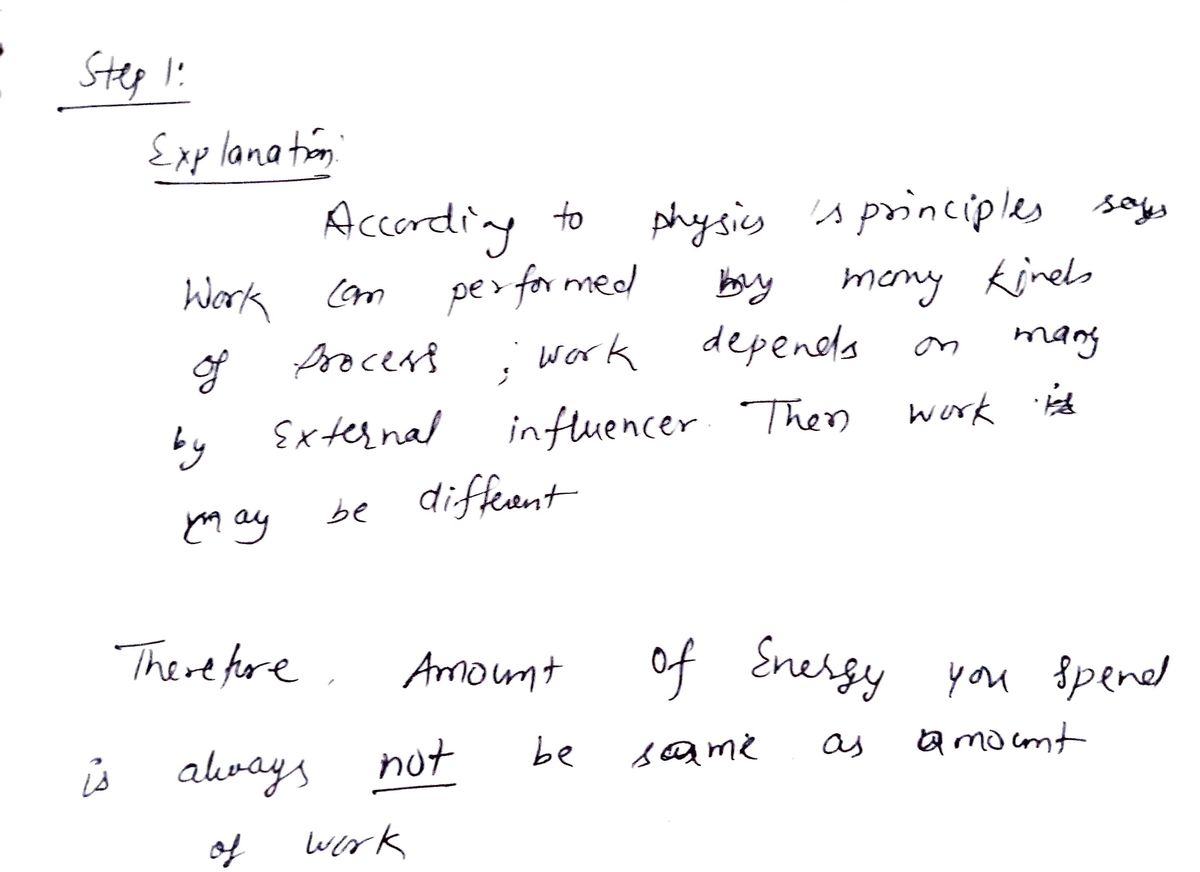 Step 1:
Explanation:
According to physics 's principles says
Work can performed by many kinds
of process ; work depends on many
by External influencer. Then work is
may be different
Therefore, Amount of Energy you spend
is always not be same as amount
of work